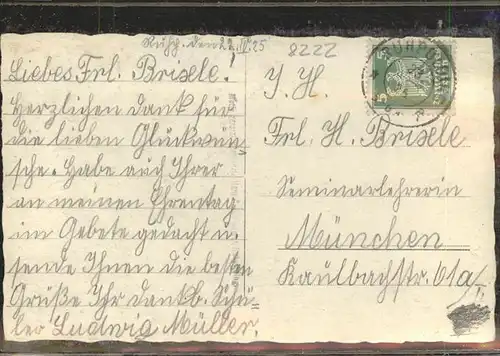 Ruhp. den 22.IV.25
8222
Liebes Frl. Brisele!
Herzlichen Dank für
die lieben Glückwün-
sche. Habe auch Ihrer
an meinen Ehrentag
im Gebete gedacht u.
sende Ihnen die besten
Grüße Ihr dankb. Schü-
ler Ludwig Müller.
I. H.
Frl. H. Brisele
Seminarlehrerin
München
Kaulbachstr. 61a/I.
5